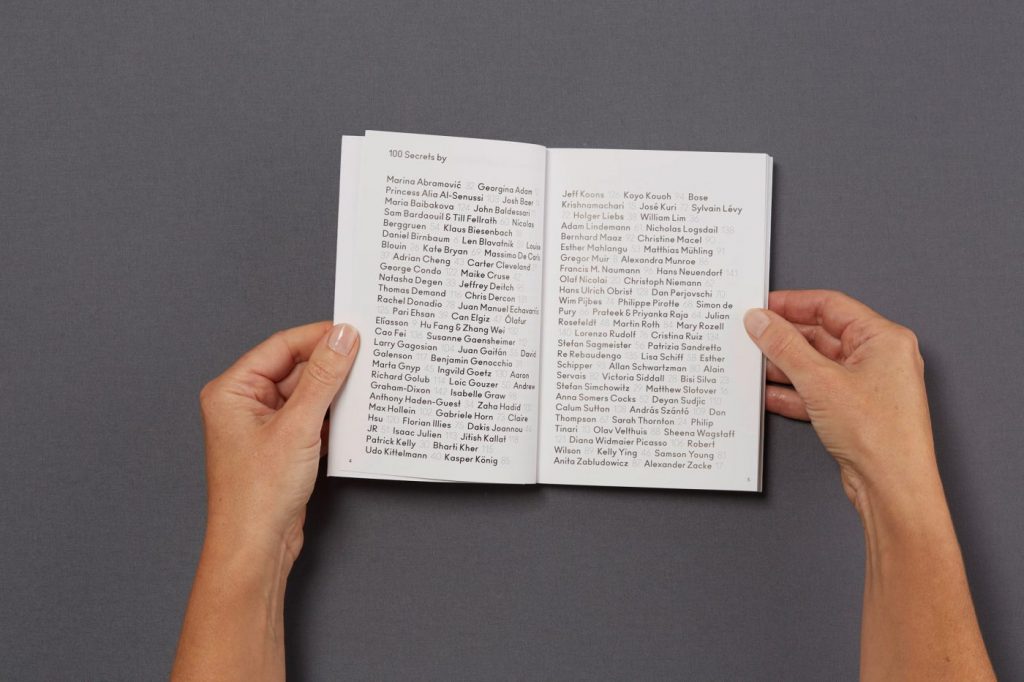 100 Secrets by
Marina Abramović Georgina Adam
Princess Alia Al-Senussi Josh Baer
Maria Baibakova John Baldessari
Sam Bardaouil & Till Fellrath Nicolas
Berggruen Klaus Biesenbach
Daniel Birnbaum Len Blavatnik Louisa
Blouin Kate Bryan Massimo De Carlo
Adrian Cheng Carter Cleveland
George Condo Maike Cruse
Natasha Degen Jeffrey Deitch
Thomas Demand Chris Dercon
Rachel Donadio Juan Manuel Echavarría
Pari Ehsan Can Elgiz Ólafur
Eliasson Hu Fang & Zhang Wei
Cao Fei Susanne Gaensheimer
Larry Gagosian Juan Gaifán David
Galenson Benjamin Genocchio
Marta Gnyp Ingvild Goetz Aaron
Richard Golub Loic Gouzer Andrew
Graham-Dixon Isabelle Graw
Anthony Haden-Guest Zaha Hadid
Max Hollein Gabriele Horn Claire
Hsu Florian Illies Dakis Joannou
JR Isaac Julien Jitish Kallat
Patrick Kelly Bharti Kher
Udo Kittelmann Kasper König
Jeff Koons Koyo Kouoh Bose
Krishnamachari José Kuri Sylvain Lévy
Holger Liebs William Lim
Adam Lindemann Nicholas Logsdail
Bernhard Maaz Christine Macel
Esther Mahlangu Matthias Mühling
Gregor Muir Alexandra Munroe
Francis M. Naumann Hans Neuendorf
Olaf Nicolai Christoph Niemann
Hans Ulrich Obrist Dan Perjovschi
Wim Pijbes Philippe Pirotte Simon de
Pury Prateek & Priyanka Raja Julian
Rosefeldt Martin Roth Mary Rozell
Lorenzo Rudolf Cristina Ruiz
Stefan Sagmeister Patrizia Sandretto
Re Rebaudengo Lisa Schiff Esther
Schipper Allan Schwartzman Alain
Servais Victoria Siddall Bisi Silva
Stefan Simchowitz Matthew Slotover
Anna Somers Cocks Deyan Sudjic
Calum Sutton András Szántó Don
Thompson Sarah Thornton Philip
Tinari Olav Velthuis Sheena Wagstaff
Diana Widmaier Picasso Robert
Wilson Kelly Ying Samson Young
Anita Zabludowicz Alexander Zacke